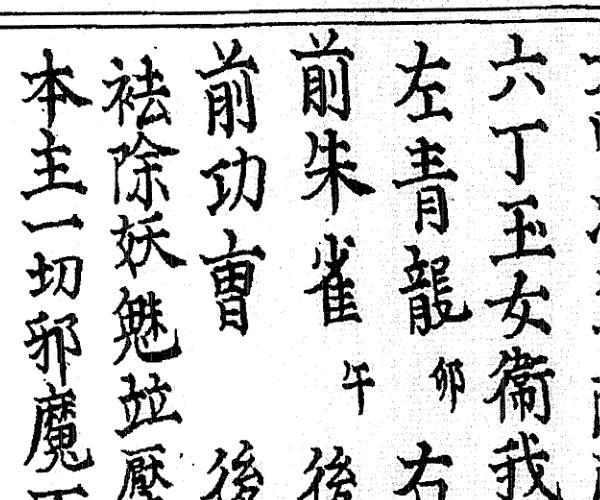 六丁玉女衛我
左青龍卯右
前朱雀午後
前功曹後
袪除妖魅並壓
本主一切邪魔